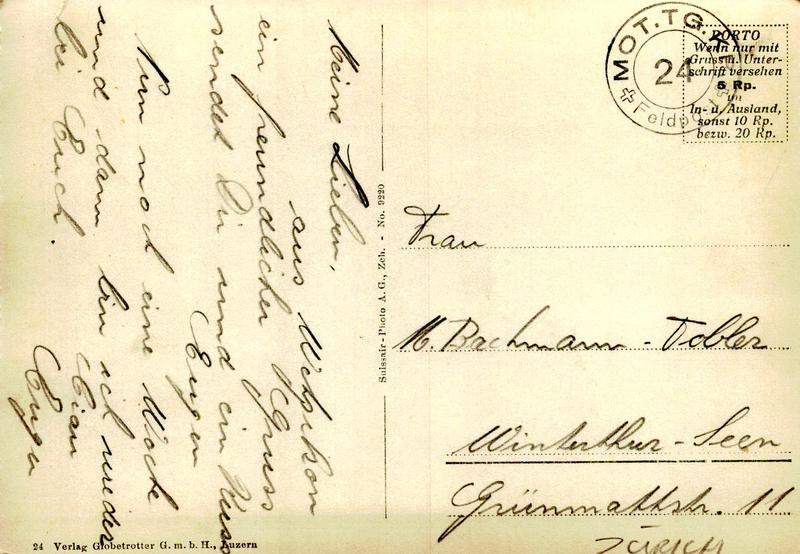 Meine Lieben,
aus Wetzikon
ein freundlicher Gruss
sendet Dir und ein Kuss
Eugen
Nun noch eine Woche
und dann bin ich wieder
bei Euch.
Ciau
Eugen
Suissair-Photo A.G., Zch. - No. 9220
MOT. TG.
24
Feldpost
PORTO
Wenn nur mit
Gruss u. Unter-
schrift versehen
5 Rp.
im
In- u. Ausland,
sonst 10 Rp.
bezw. 20 Rp.
Frau
M. Bachmann-Tobler
Winterthur-Seen
Grünmattstr. 11.
Zürich
24 Verlag Globetrotter G. m. b. H., Luzern